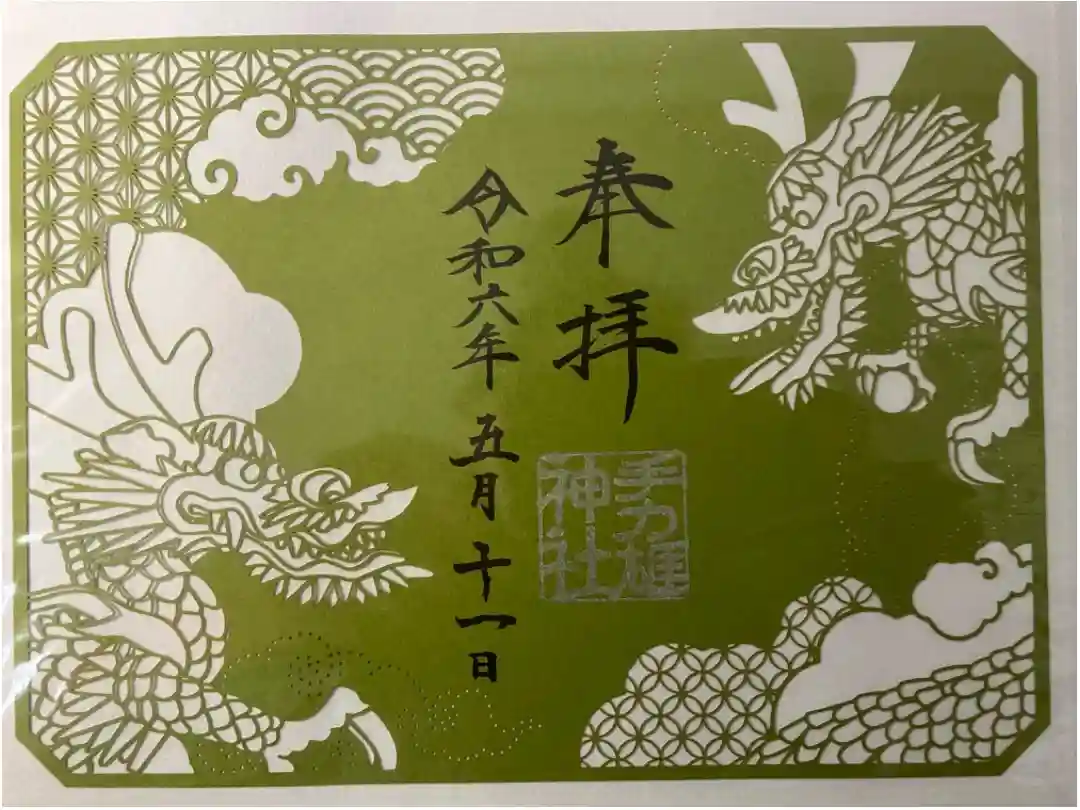 奉拝
手力雄
神社
令和六年五月十一日